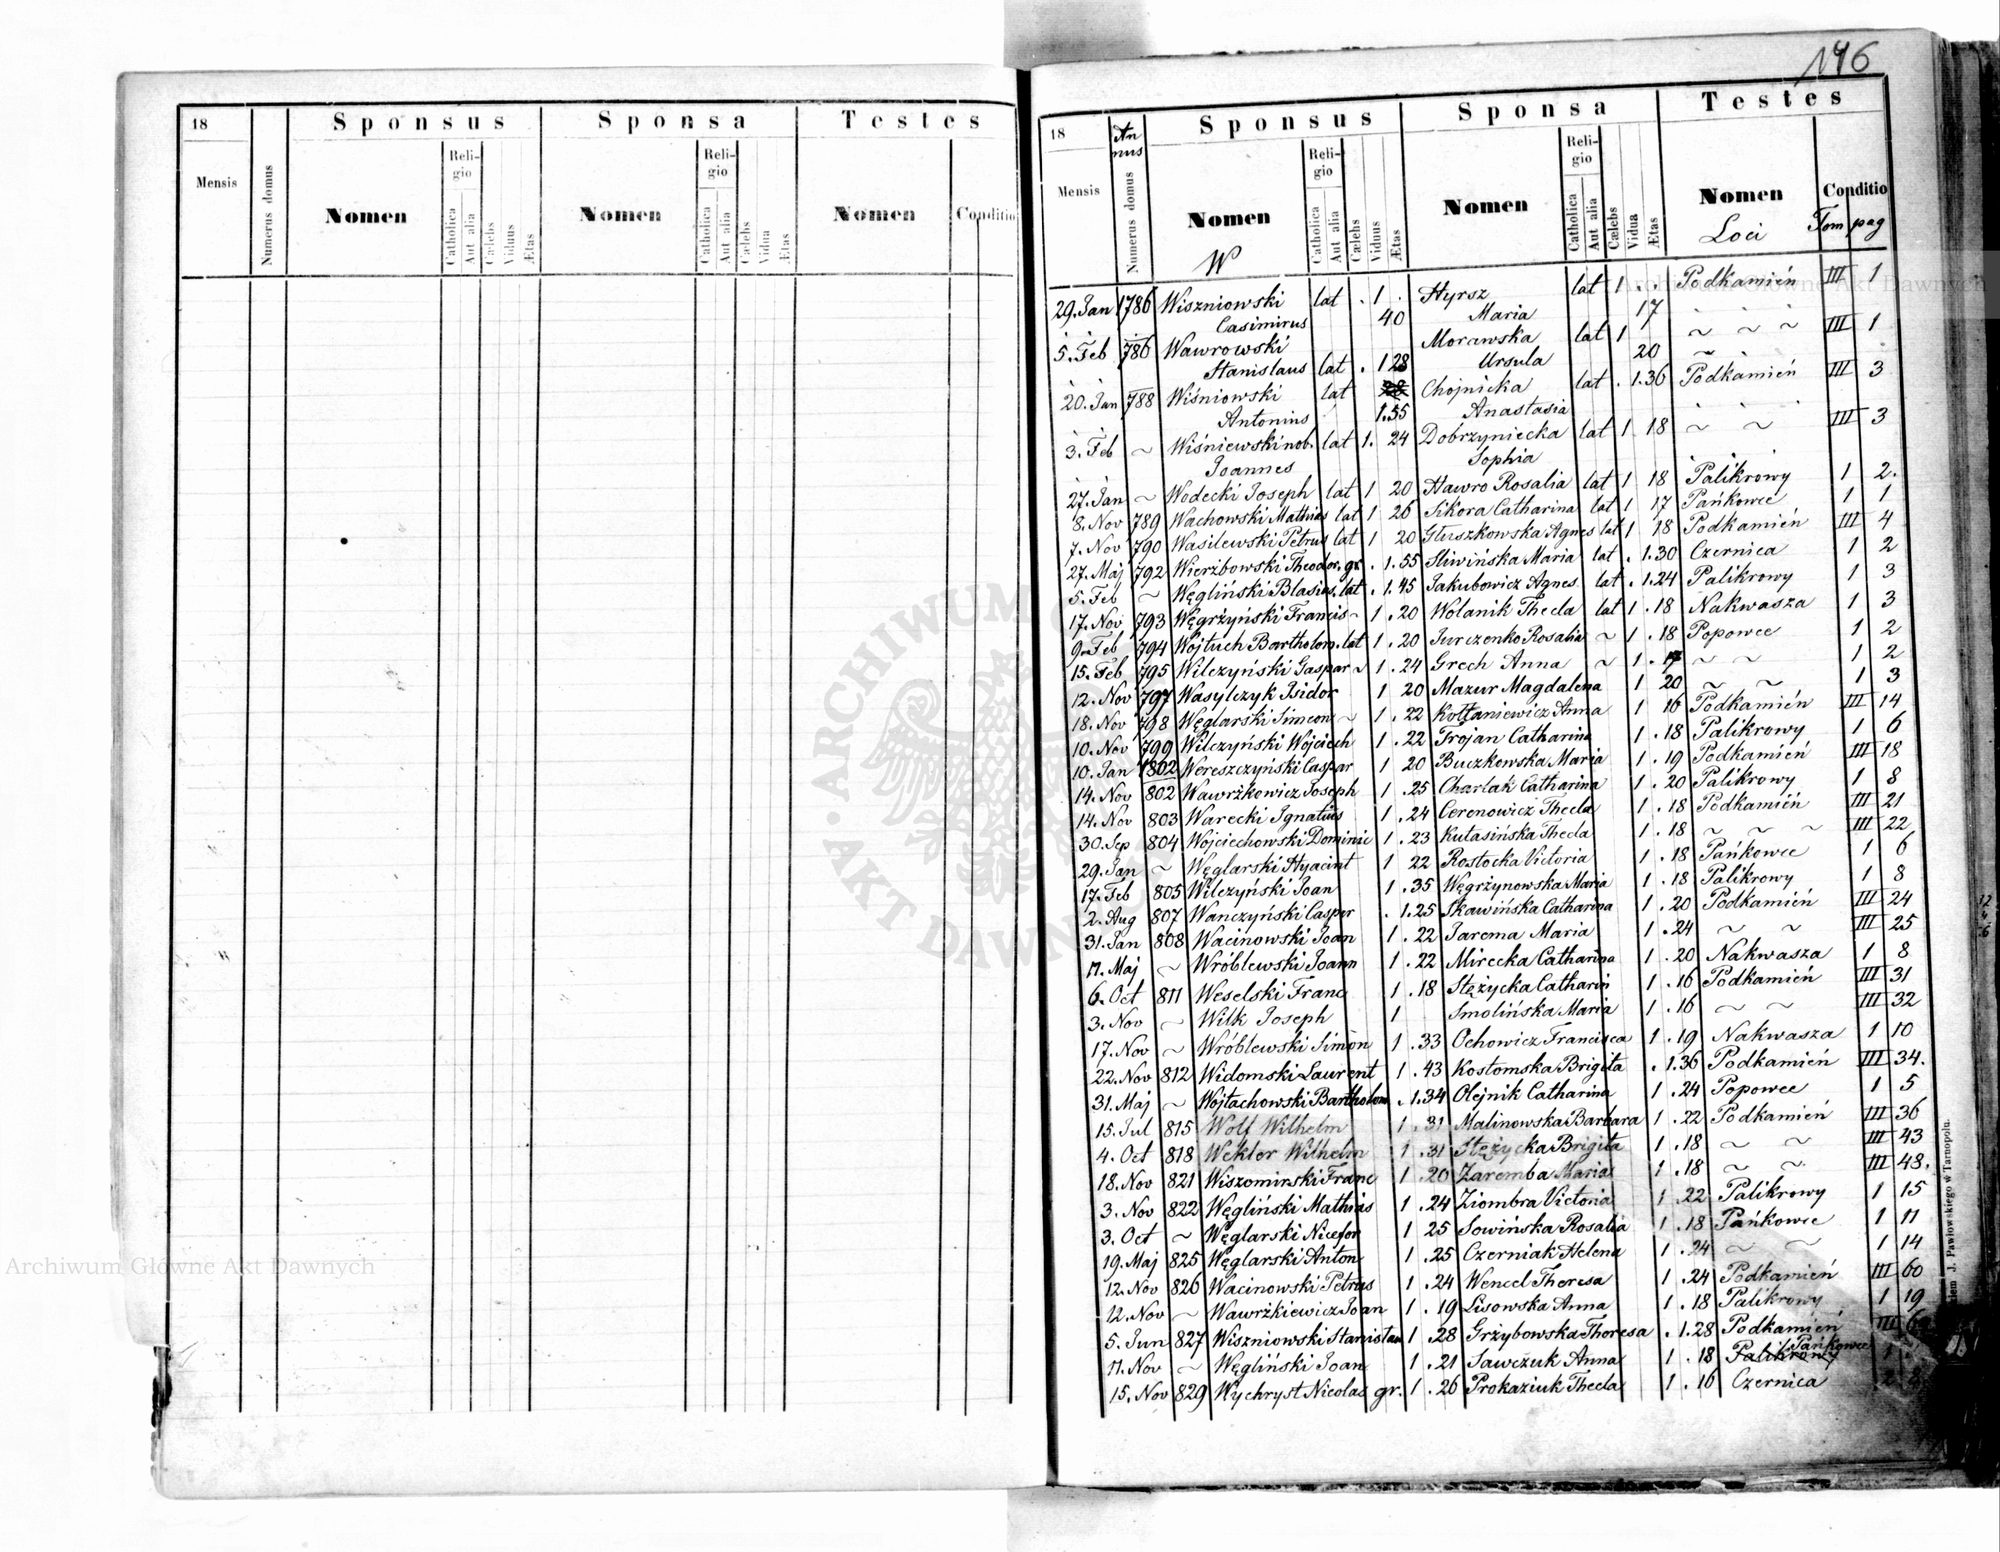 146
18 Sponsus Sponsa Testes
Mensis Numerus domus Nomen Religio Catholica Aut alia Cælebs Viduus Ætas Nomen Religio Catholica Aut alia Cælebs Vidua Ætas Nomen Conditio
18 Annus Sponsus Sponsa Testes
Mensis Numerus domus Nomen Religio Catholica Aut alia Cælebs Viduus Ætas Nomen Religio Catholica Aut alia Cælebs Vidua Ætas Nomen Conditio
W Loci Tom pag
29. Jan 1786 Wiszniowski lat . 1 . Hyrsz lat 1 . . Podkamień III 1
Casimirus 40 Maria 17
5. Feb 786 Wawrowski Morawska lat 1 ~ ~ ~ III 1
Stanislaus lat . 1 28 Ursula 20
20. Jan 788 Wiśniowski lat Chojnicka lat . 1.36 Podkamień III 3
Antonius 1.55 Anastasia
3. Feb ~ Wiśniewski nob. lat 1. 24 Dobrzyniecka lat 1 18 ~ ~ III 3
Joannes Sophia
27. Jan ~ Wodecki Joseph lat 1 20 Hawro Rosalia lat 1 18 Palikrowy 1 2.
8. Nov 789 Wachowski Mathias lat 1 26 Sikora Catharina lat 1 17 Pańkowce 1 1
7. Nov 790 Wasilewski Petrus lat 1 20 Głuszkowska Agnes lat 1 18 Podkamień III 4
27. Maj 792 Wierzbowski Theodor. gr. . 1.55 Sliwińska Maria lat . 1.30 Czernica 1 2
5. Feb ~ Węgliński Blasius. lat . 1.45 Jakubowicz Agnes. lat . 1.24 Palikrowy 1 3
17. Nov 793 Węgrżyński Francis ~ 1 . 20 Wolanik Thecla lat 1 . 18 Nakwasza 1 3
9. Feb 794 Wojtuch Bartholom. lat 1 . 20 Jurczenko Rosalia ~ 1 . 18 Popowce 1 2
15. Feb 795 Wilczyński Gaspar ~ 1 . 24 Grech Anna ~ 1 . 17 ~ ~ 1 2
12. Nov 797 Wasylczyk Isidor 1 20 Mazur Magdalena 1 20 ~ ~ 1 3
18. Nov 798 Węglarski Simeon ~ 1 . 22 Kołtaniewicz Anna 1 16 Podkamień III 14
10. Nov 799 Wilczyński Wojciech 1 . 22 Trojan Catharina 1 . 18 Palikrowy 1 6
10. Jan 1802 Wereszczyński Caspar 1 20 Buczkowska Maria 1 . 19 Podkamień III 18
14. Nov 802 Wawrżkowicz Joseph 1 . 25 Charlak Catharina 1 . 20 Palikrowy 1 8
14. Nov 803 Warecki Ignatius 1 . 24 Cerenowicz Thecla 1 . 18 Podkamień III 21
30. Sep 804 Wojciechowski Dominic 1 . 23 Kutasińska Thecla 1 . 18 ~ ~ ~ III 22
29. Jan ~ Węglarski Hyacint 1 22 Rostocka Victoria 1 . 18 Pańkowce 1 6
17. Feb 805 Wilczyński Joan 1 . 35 Węgrżynowska Maria 1 . 18 Palikrowy 1 8
2. Aug 807 Wanczyński Casper . 1.25 Skawińska Catharina 1 . 20 Podkamień III 24
31. Jan 808 Wacinowski Joan 1 . 22 Jarema Maria 1 . 24 ~ ~ III 25
11. Maj ~ Wróblewski Joann 1 . 22 Mirecka Catharina 1 . 20 Nakwasza 1 8
6. Oct 811 Weselski Franc 1 . 18 Stężycka Catharin 1 . 16 Podkamień III 31
3. Nov ~ Wilk Joseph 1 Smolińska Maria 1 . 16 ~ ~ III 32
17. Nov ~ Wróblewski Simon 1 . 33 Ochowicz Francisca 1 . 19 Nakwasza 1 10
22. Nov 812 Widomski Laurent 1 . 43 Kostomska Brigita . 1.36 Podkamień III 34.
31. Maj ~ Wojtachowski Bartholom . 1.34 Olejnik Catharina 1 . 24 Popowce 1 5
15. Jul 815 Wolf Wilhelm 1 . 31 Malinowska Barbara 1 . 22 Podkamień III 36
4. Oct 818 Wektor Wilhelm 1 . 31 Stężycka Brigita 1 . 18 ~ ~ III 43
18. Nov 821 Wiszomirski Franc 1 . 20 Zaremba Maria 1 . 18 ~ ~ III 48.
3. Nov 822 Węgliński Mathias 1 . 24 Ziombra Victoria 1 . 22 Palikrowy 1 15
3. Oct ~ Węglarski Nicefor 1 25 Sowińska Rosalia 1 . 18 Pańkowce 1 11
19. Maj 825 Węglarski Anton 1 . 25 Czerniak Helena 1 . 24 ~ ~ 1 14
12. Nov 826 Wacinowski Petrus 1 . 24 Wencel Theresa 1 . 24 Podkamień III 60
12. Nov ~ Wawrżkiewicz Joan 1 . 19 Lisowska Anna 1 . 18 Palikrowy 1 19
5. Jun 827 Wiszniowski Stanislau 1 . 28 Grżybowska Theresa . 1.28 Podkamień III
11. Nov ~ Węgliński Joan 1 . 21 Sawczuk Anna 1 . 18 Palikrowy Pańkowce 1
15. Nov 829 Wychryst Nicolas gr. 1 . 26 Prokaziuk Thecla 1 . 16 Czernica
J. Pawłowskiego w Tarnopolu.
Archiwum Główne Akt Dawnych
Archiwum Główne Akt Dawnych
ARCHIWUM
AKT DAWNYCH